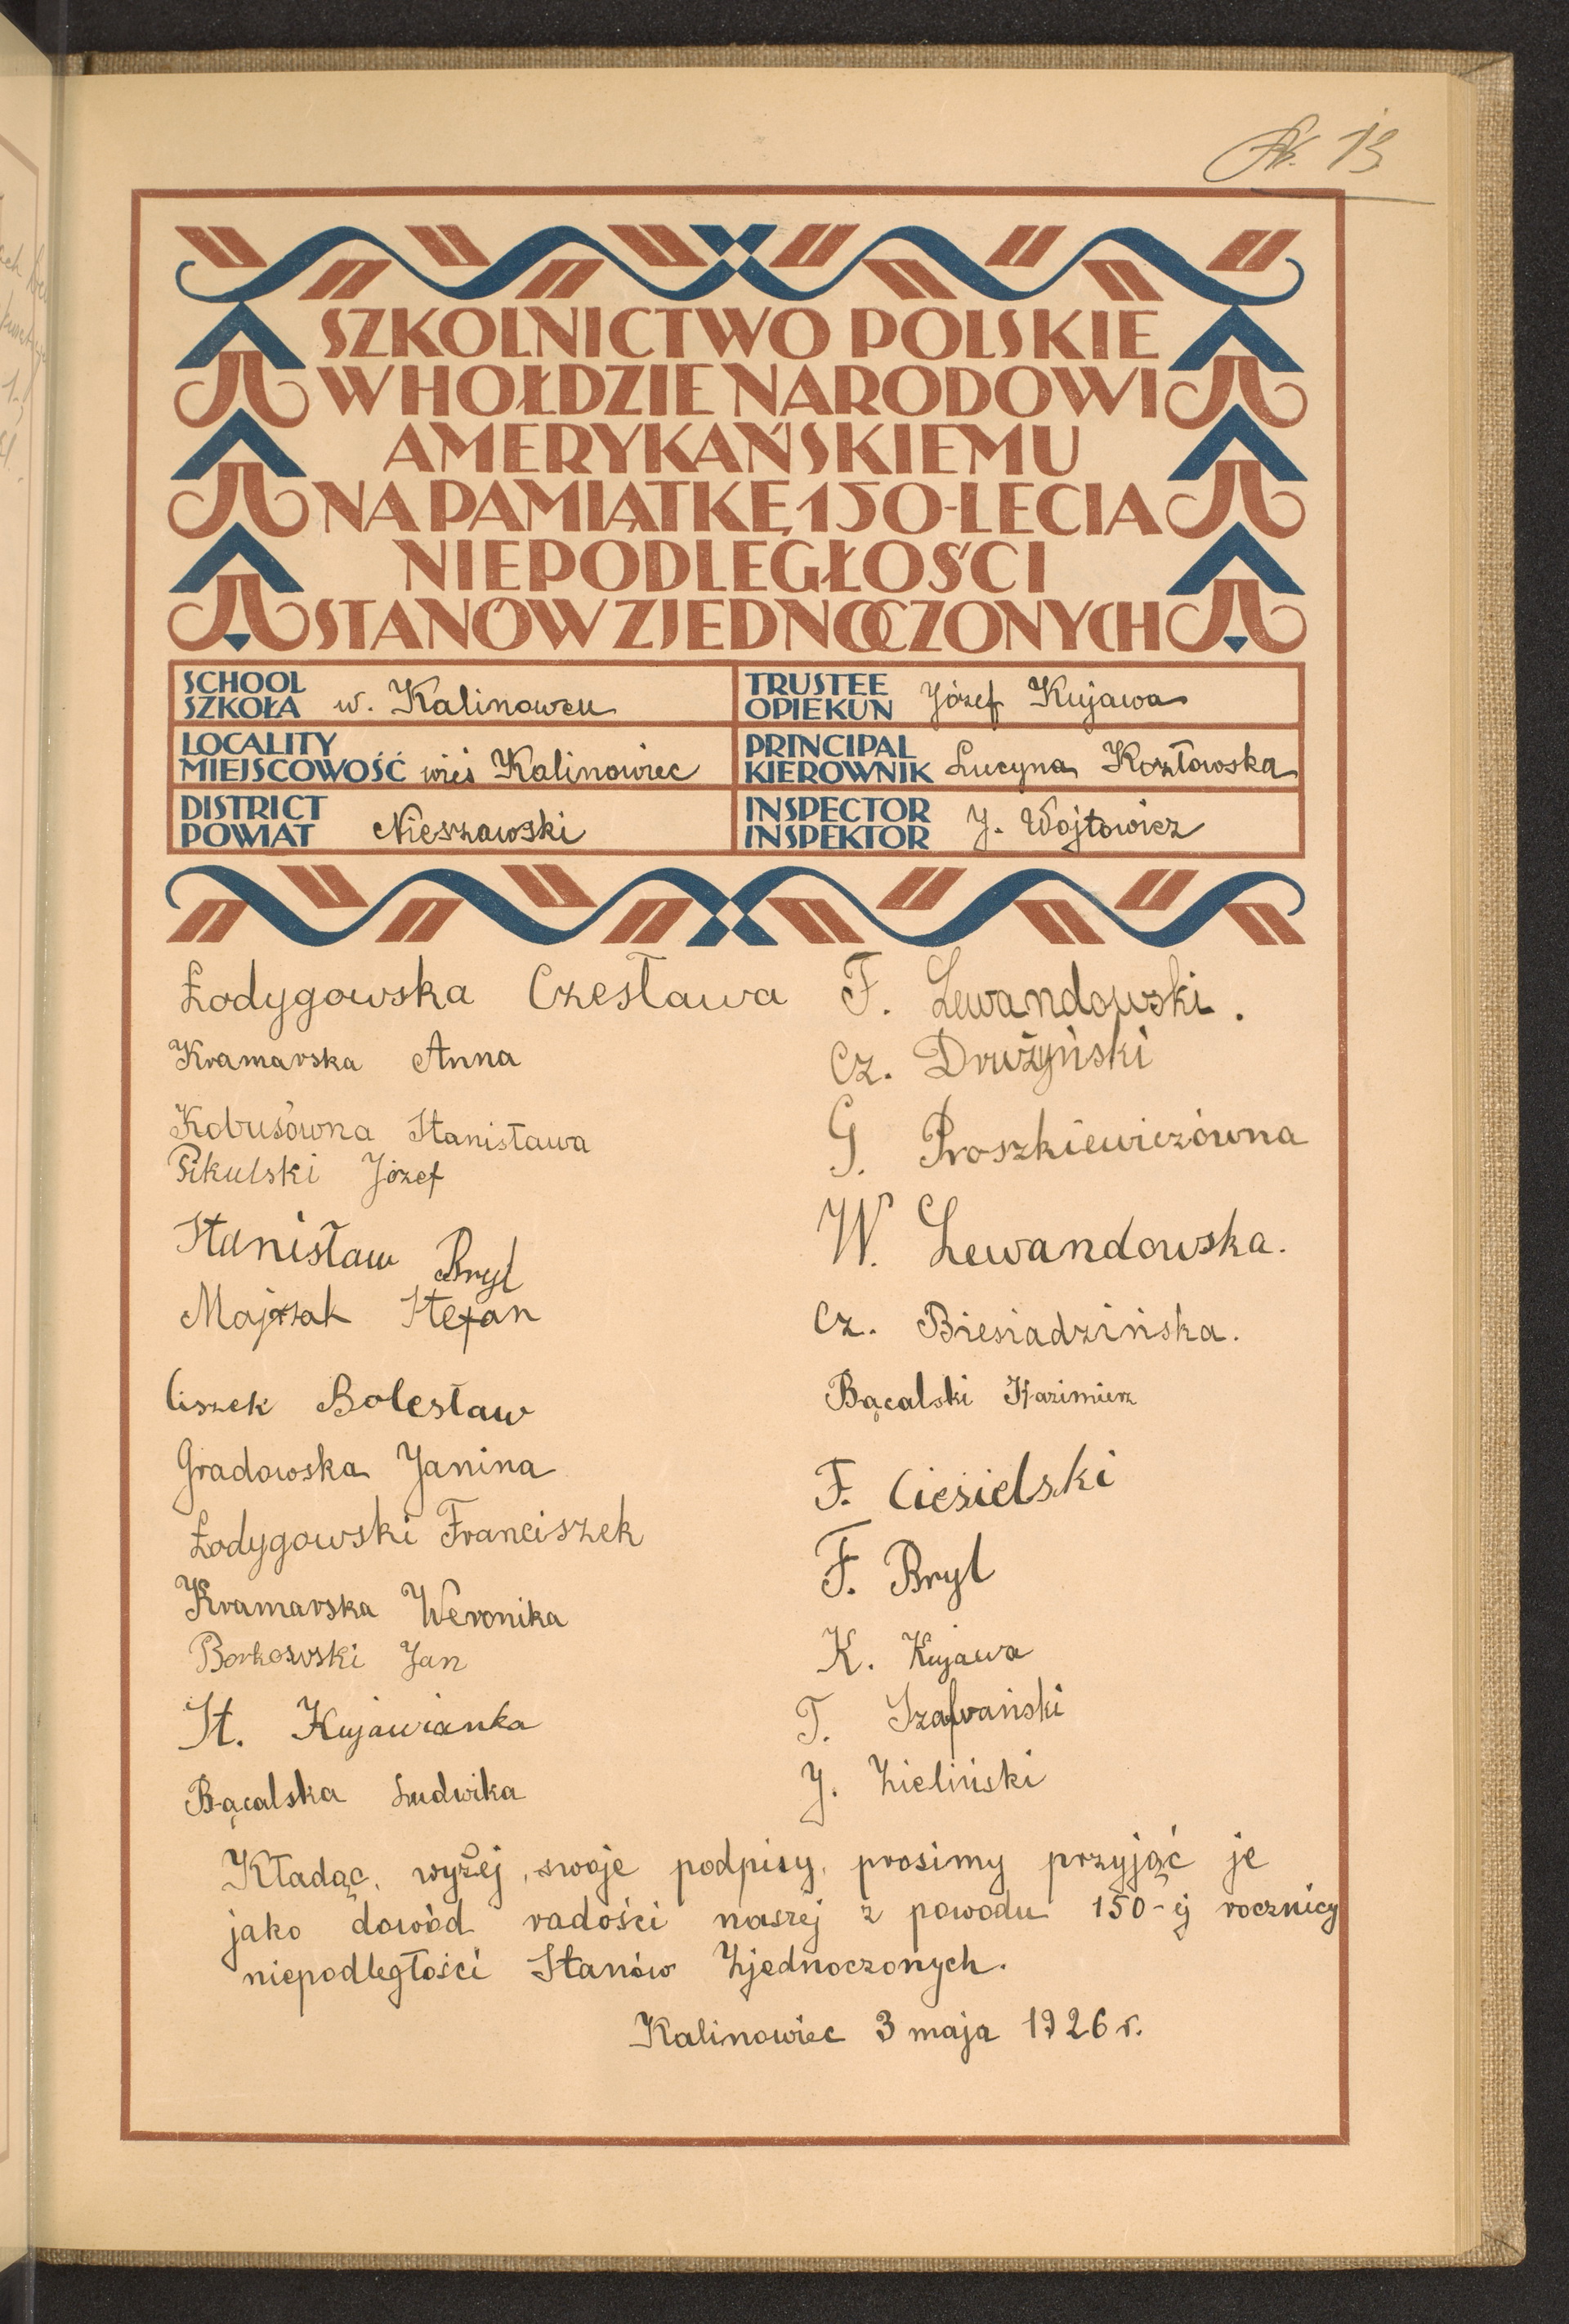 № 13
SZKOLNICTWO POLSKIE
W HOŁDZIE NARODOWI
AMERYKAŃSKIEMU
NA PAMIĄTKĘ 150-LECIA
NIEPODLEGŁOŚCI
STANÓW ZJEDNOCZONYCH
SCHOOL
SZKOŁA w. Kalinowcu
TRUSTEE
OPIEKUN Józef Kujawa
LOCALITY
MIEJSCOWOŚĆ wieś Kalinowiec
PRINCIPAL
KIEROWNIK Lucyna Kozłowska
DISTRICT
POWIAT Nieszawski
INSPECTOR
INSPEKTOR J. Wojtowicz
Łodygowska Czesława
Kramarska Anna
Kobusówna Stanisława
Pikulski Józef
Stanisław Bryl
Majrzak Stefan
Ciszek Bolesław
Gradowska Janina
Łodygowski Franciszek
Kramarska Weronika
Borkowski Jan
St. Kujawianka
Bącalska Ludwika
F. Lewandowski.
Cz. Drużyński
G. Proszkiewiczówna
W. Lewandowska.
Cz. Biesiadzińska.
Bącalski Kazimierz
F. Ciesielski
F. Bryl
K. Kujawa
T. Szafrański
J. Zieliński
Kładąc, wyżej, swoje podpisy, prosimy przyjąć je
jako dowód radości naszej z powodu 150-ej rocznicy
niepodległości Stanów Zjednoczonych.
Kalinowiec 3 maja 1926 r.